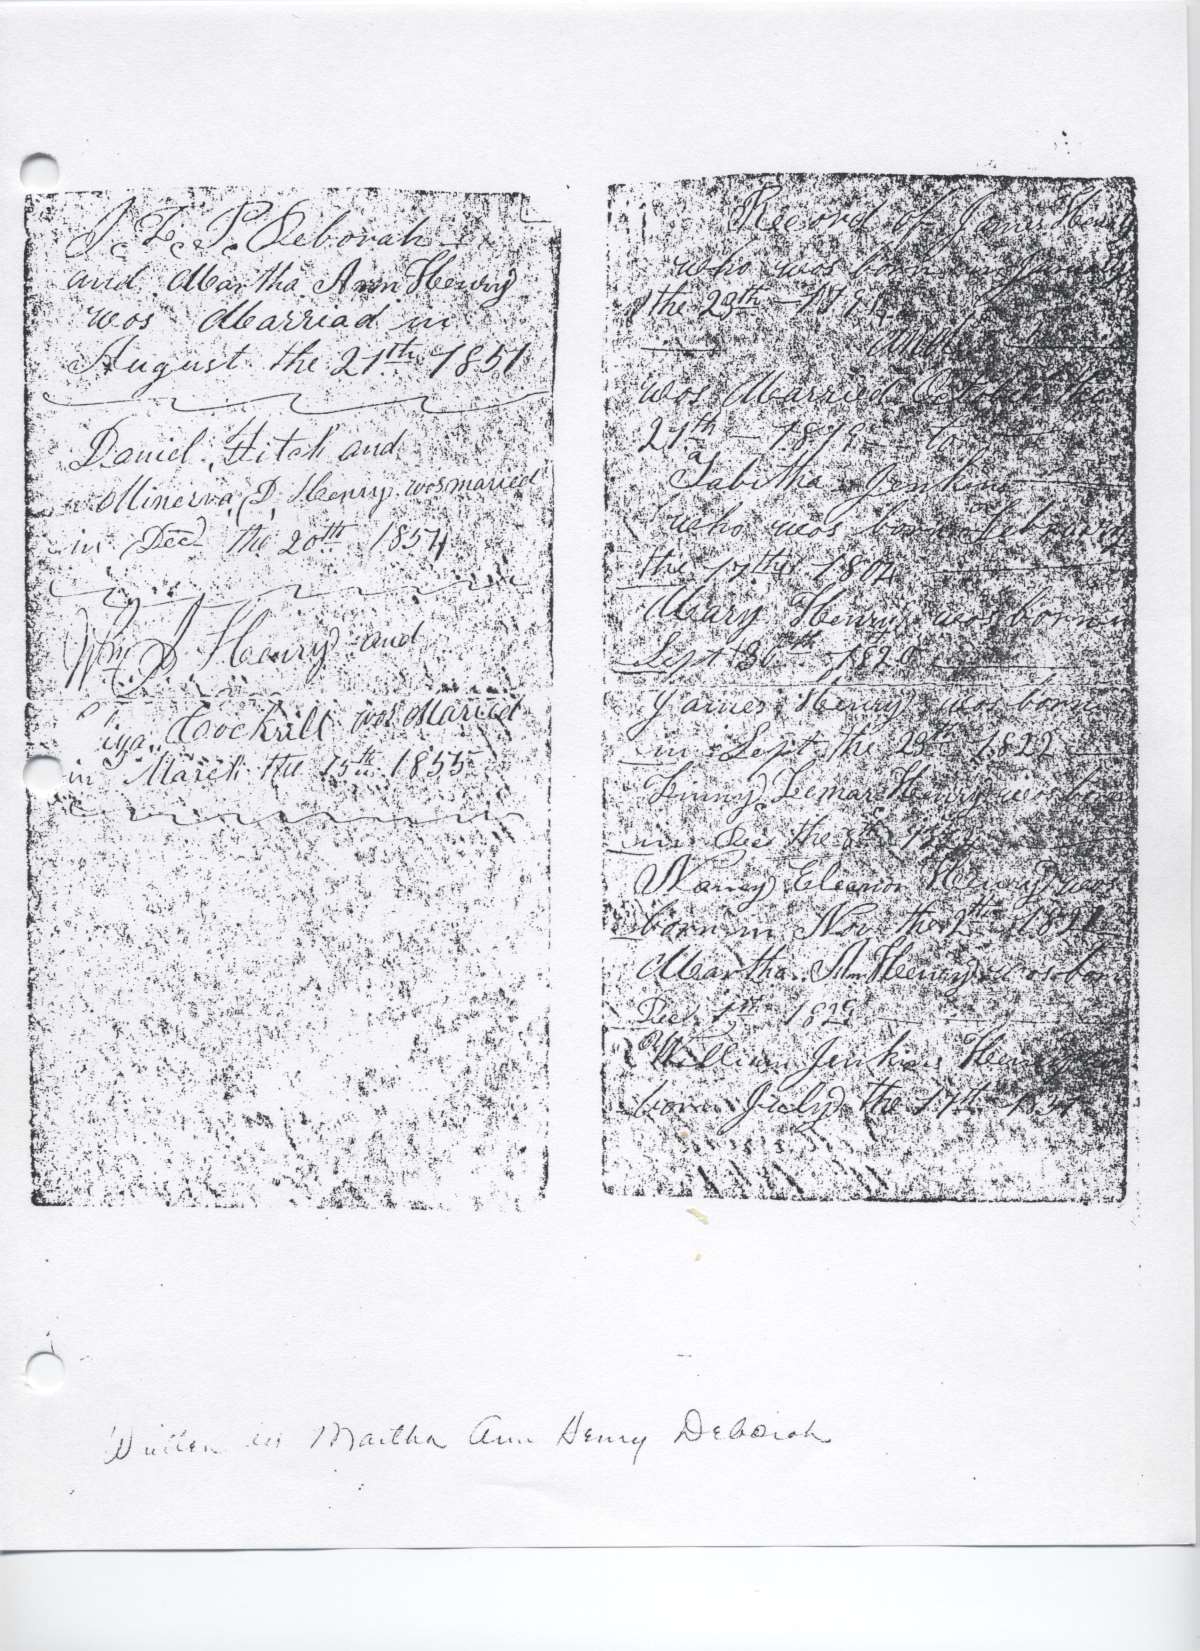 J. F. P. Deborah
and Martha Ann Henry
wos Marriad in
August the 21th 1851
Daniel Fitch and
Minerva D. Henry wos maried
in Dec the 20th 1854
Wm J Henry and
Cockrill wos Maried
in March the 15th 1855
Record of James Henry
who wos born in January
the 29th
wos Married October the
21th to
Tabitha Jenkins
who wos born Febuary
the 1804
Mary Henry wos born in
Sept 30th 1820
James Henry wos born
in Sept the 29th 1822
Lemar Henry wos born
in Dec the 8th
Nancy Eleanor Henry wos
born in Nov the 2th
Martha Ann Henry wos born
Dec 1st 1829
William Jenkins Henry
born July the 17th
Written in Martha Ann Henry Deborah